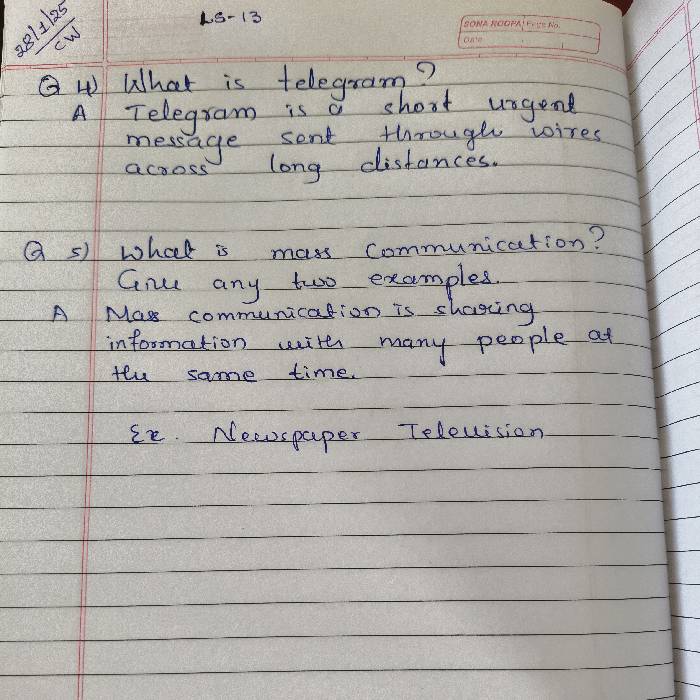 28/1/25
CW
LS-13
SONA ROOPA Page No.
Date
Q 4) What is telegram?
A Telegram is a short urgent
message sent through wires
across long distances.
Q 5) What is mass communication?
Give any two examples.
A Mass communication is sharing
information with many people at
the same time.
Ex. Newspaper Television